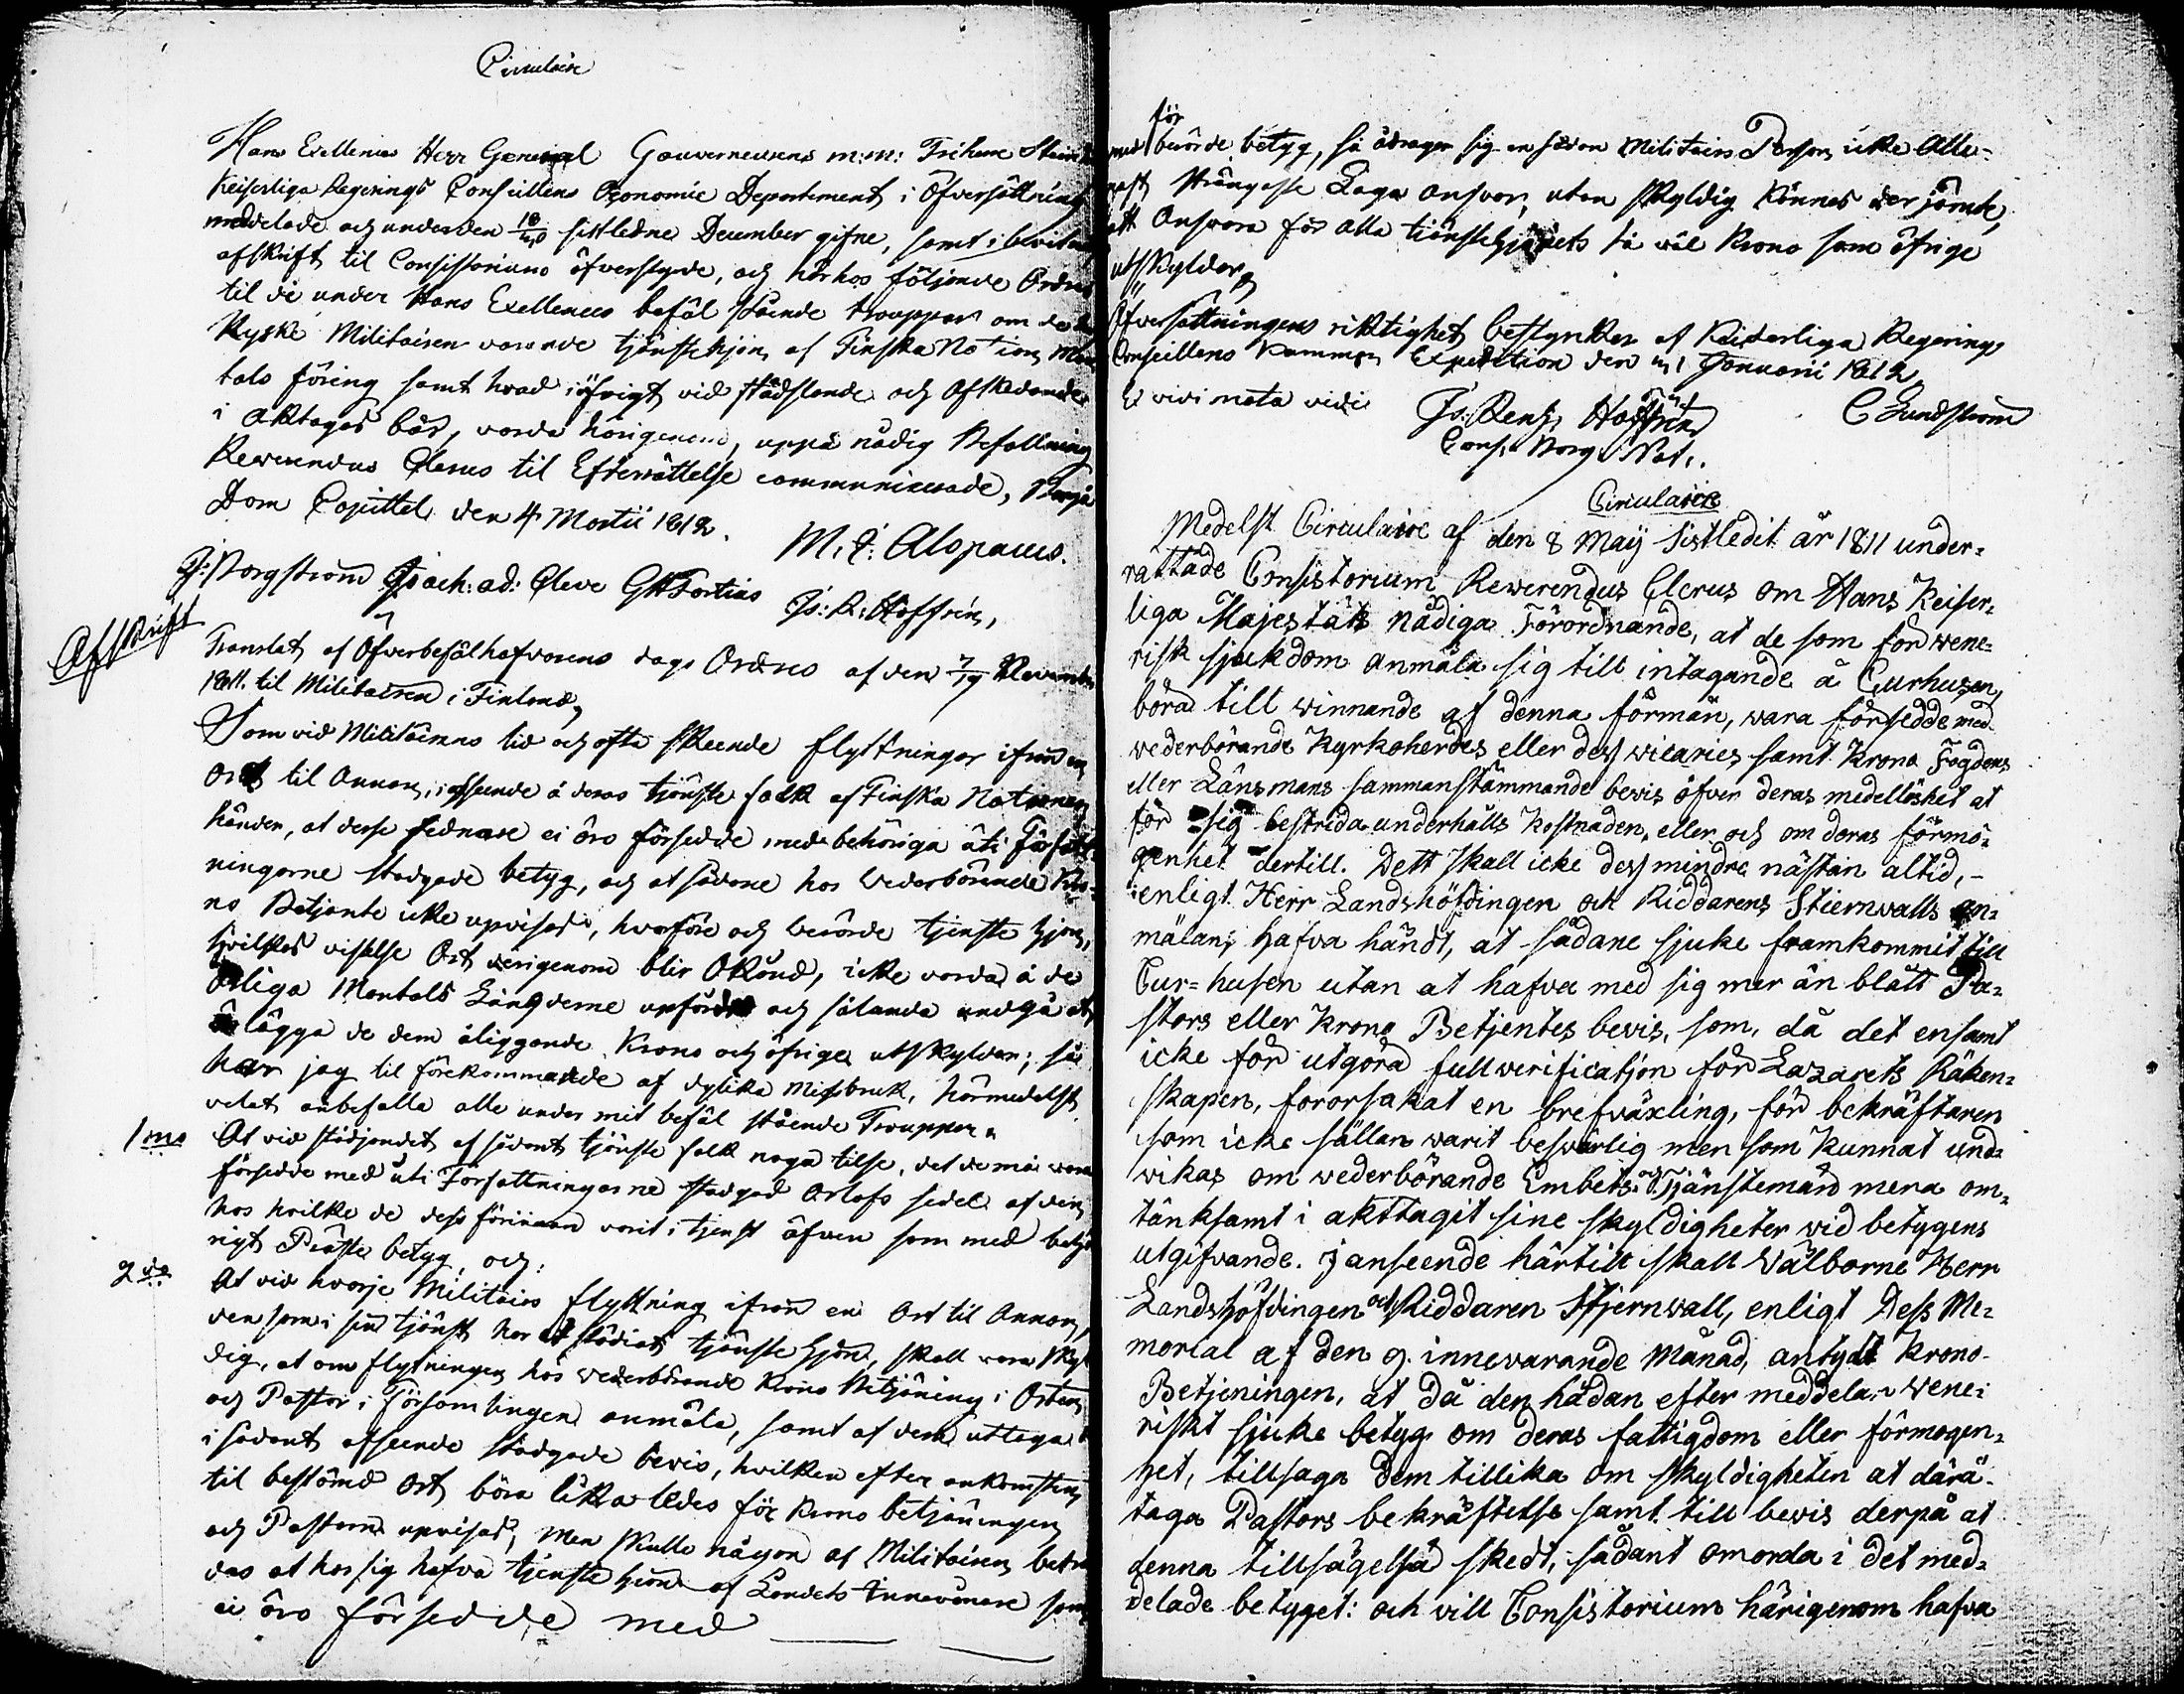 Circulaire
Hans Exellences Herr General Gouverneurens m:m: Friherre Stein
Keiserliga Regerings Conseillens Oeconomie Departement i Öfversättning
meddelade och under den 18/30 sistledne December gifne, samt i bevitnad
afskrift til Consistorium öfverstyrde, och härhos följande Ordres
til de under Hans Exellences befäl stående trouppar om de hos
Ryska Militairen varande tjänstehjon af Finska Nation, Man
tals föring samt hvad i öfrigt vid städslande och afskedande
i akttagas bör, varda härigenom, uppå nådig Befallning
Reverendus Clerus til Efterrättelse communicerade, Borgå
Dom Capittel den 4 Martii 1812.
M. J: Alopaeus.
J: Borgström Joach: ad: Cleve GH Fortius Js: R: Hoffrén,
Afskrift
Translat af Öfverbefälhafvarens dags Ordres af den 7/19 November
1811. til Militairen i Finland,
Som vid Militairens tid och ofta skeende flyttningar ifrån en
Ort til Annan, i afseende å deras tjänste folk af Finska Nationen
händer, at desse sednare ei äro försedde med behöriga uti Författ-
ningarne stadgade betyg, och at sådane hos Vederbörande Kro-
no Betjente icke upvisas, hvarföre och berörde tjenste hjon,
hvilkas vistelse Ort derigenom blir Okänd, icke varda å de
årliga Mantals Längderne upförde och sålunda undgå at
ärlägga de dem åliggande Krono och öfriga utskylder; så
har jag til förekommande af dylika Missbruk, härmedelst
velat anbefalla alle under mit befäl stående Troupper.
1mo At vid städjandet af sådant tjänste folk noga tilse, det de må vara
försedde med uti Författningarne stadgad Orlofs sedel af den
hos hvilke de dess förinnan varit i tjenst äfven som med behö
rigt Präste betyg, och:
2do At vid hvarje Militairs flyttning ifrån en Ort til Annan,
den som i sin tjänst har et städiat tjänste Hjon, skall vara skyl
dig, at om flytningen hos vederbörande Krono Betjäning i Orten
och Pastor i Församlingen anmäla, samt af dem uttaga
i sådant afseende stadgade bevis, hvilken efter ankomsten
til bestämd Ort böra lika ledes för Krono betjäningen
och Pastorn upvisas, Men skulle någon af Militairen beträ
das at hos sig hafva tjenste hion af Landets Innevånare som
ei äro försedde med
med för berörde betyg, så ådrager sig en sådan Militairs Person icke Alle-
nast strängaste Laga ansvar, utan skyldig kännes der jämte,
att Ansvara för alla tiänstehjonets så väl Krono som öfrige
utskylder,
Öfversättningens riktighet bestyrkes af Keiserliga Regerings
Conseillens Kammar Expedition den 21 Januarii 1812
C Lundström
E vivi nota vidi
Js: Renh: Hoffrén
Cons: Borg: Not:.
Circulaire
Medelst Circulaire af den 8 Maij sistledit år 1811 under-
rättade Consistorium Rewerendus Clerus om Hans Keiser-
liga Majestäts nådiga Förordnande, at de som för wene-
risk sjukdom anmäla sig till intagande å Curhusen,
böra till winnande af denna förmån, wara försedde med
wederbörande Kyrkoherdes eller dess vicaries samt Krono Fogdens
eller Länsmans sammanstämmande bevis öfver deras medellöshet at
för sig bestrida underhålls kostnaden, eller och om deras förmö-
genhet dertill. Dett skall icke dess mindre nästan altid, -
enligt Herr Landshöfdingen och Riddarens Stiernwalls an-
mälan, hafva händt, at sådane sjuke framkommit till
Cur-husen utan at hafva med sig mer än blått Pa-
stors eller Krono Betjentes bewis, som, då det ensamt
icke får utgöra full verification för Lazarets Räken-
skapen, fororsakat en brefväxling, för bekräftaren
som icke sällan warit beswärlig men som kunnat und-
wikas om wederbörande Embets- och Tjänstemän mera om-
tänksamt i akttagit sine skyldigheter wid betygens
utgifvande. J anseende härtill skall Wälborne Herr
Landshöfdingen och Riddaren Stjernwall, enligt Dess Me-
morial af den 9. innevarande Månad, antydt Krono-
Betjeningen, at då den hädan efter meddelar wene-
riskt sjuke betyg om deras fattigdom eller förmögen-
het, tillsaga dem tillika om skyldigheten at därå
taga Pastors bekräftelse samt till bevis derpå at
denna tillsägelse skedt, sådant omorda i det med-
delade betyget: och vill Consistorium härigenom hafva